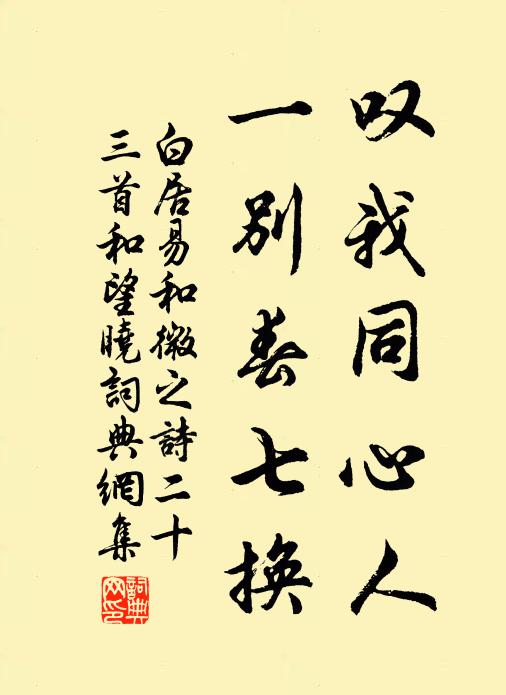 叹我同心人
一别春七换
白居易和微之詩二十
三首和望曉詞典網集
詞典
网印